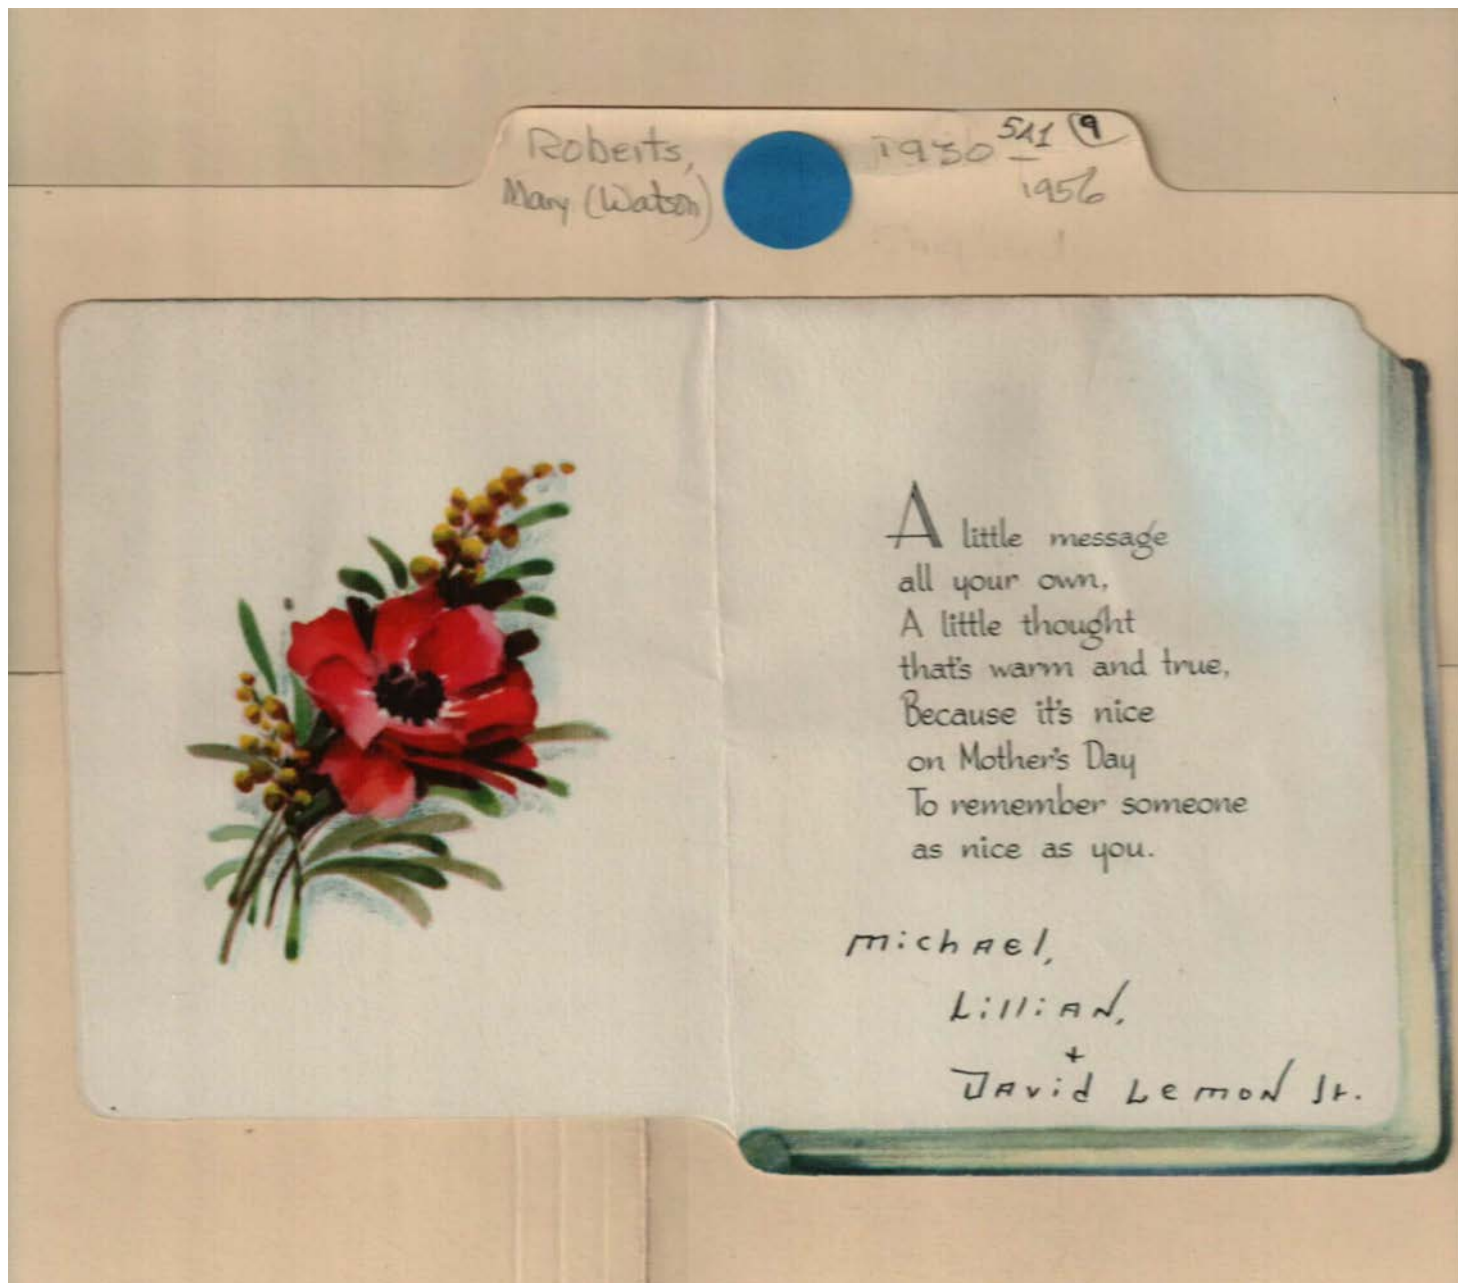 Roberts,
Mary (Watson)
1930 -
5A1 9
1956
A little message
all your own,
A little thought
that's warm and true,
Because it's nice
on Mother's Day
To remember someone
as nice as you.
michael,
Lillian,
+
David Lemon Jr.